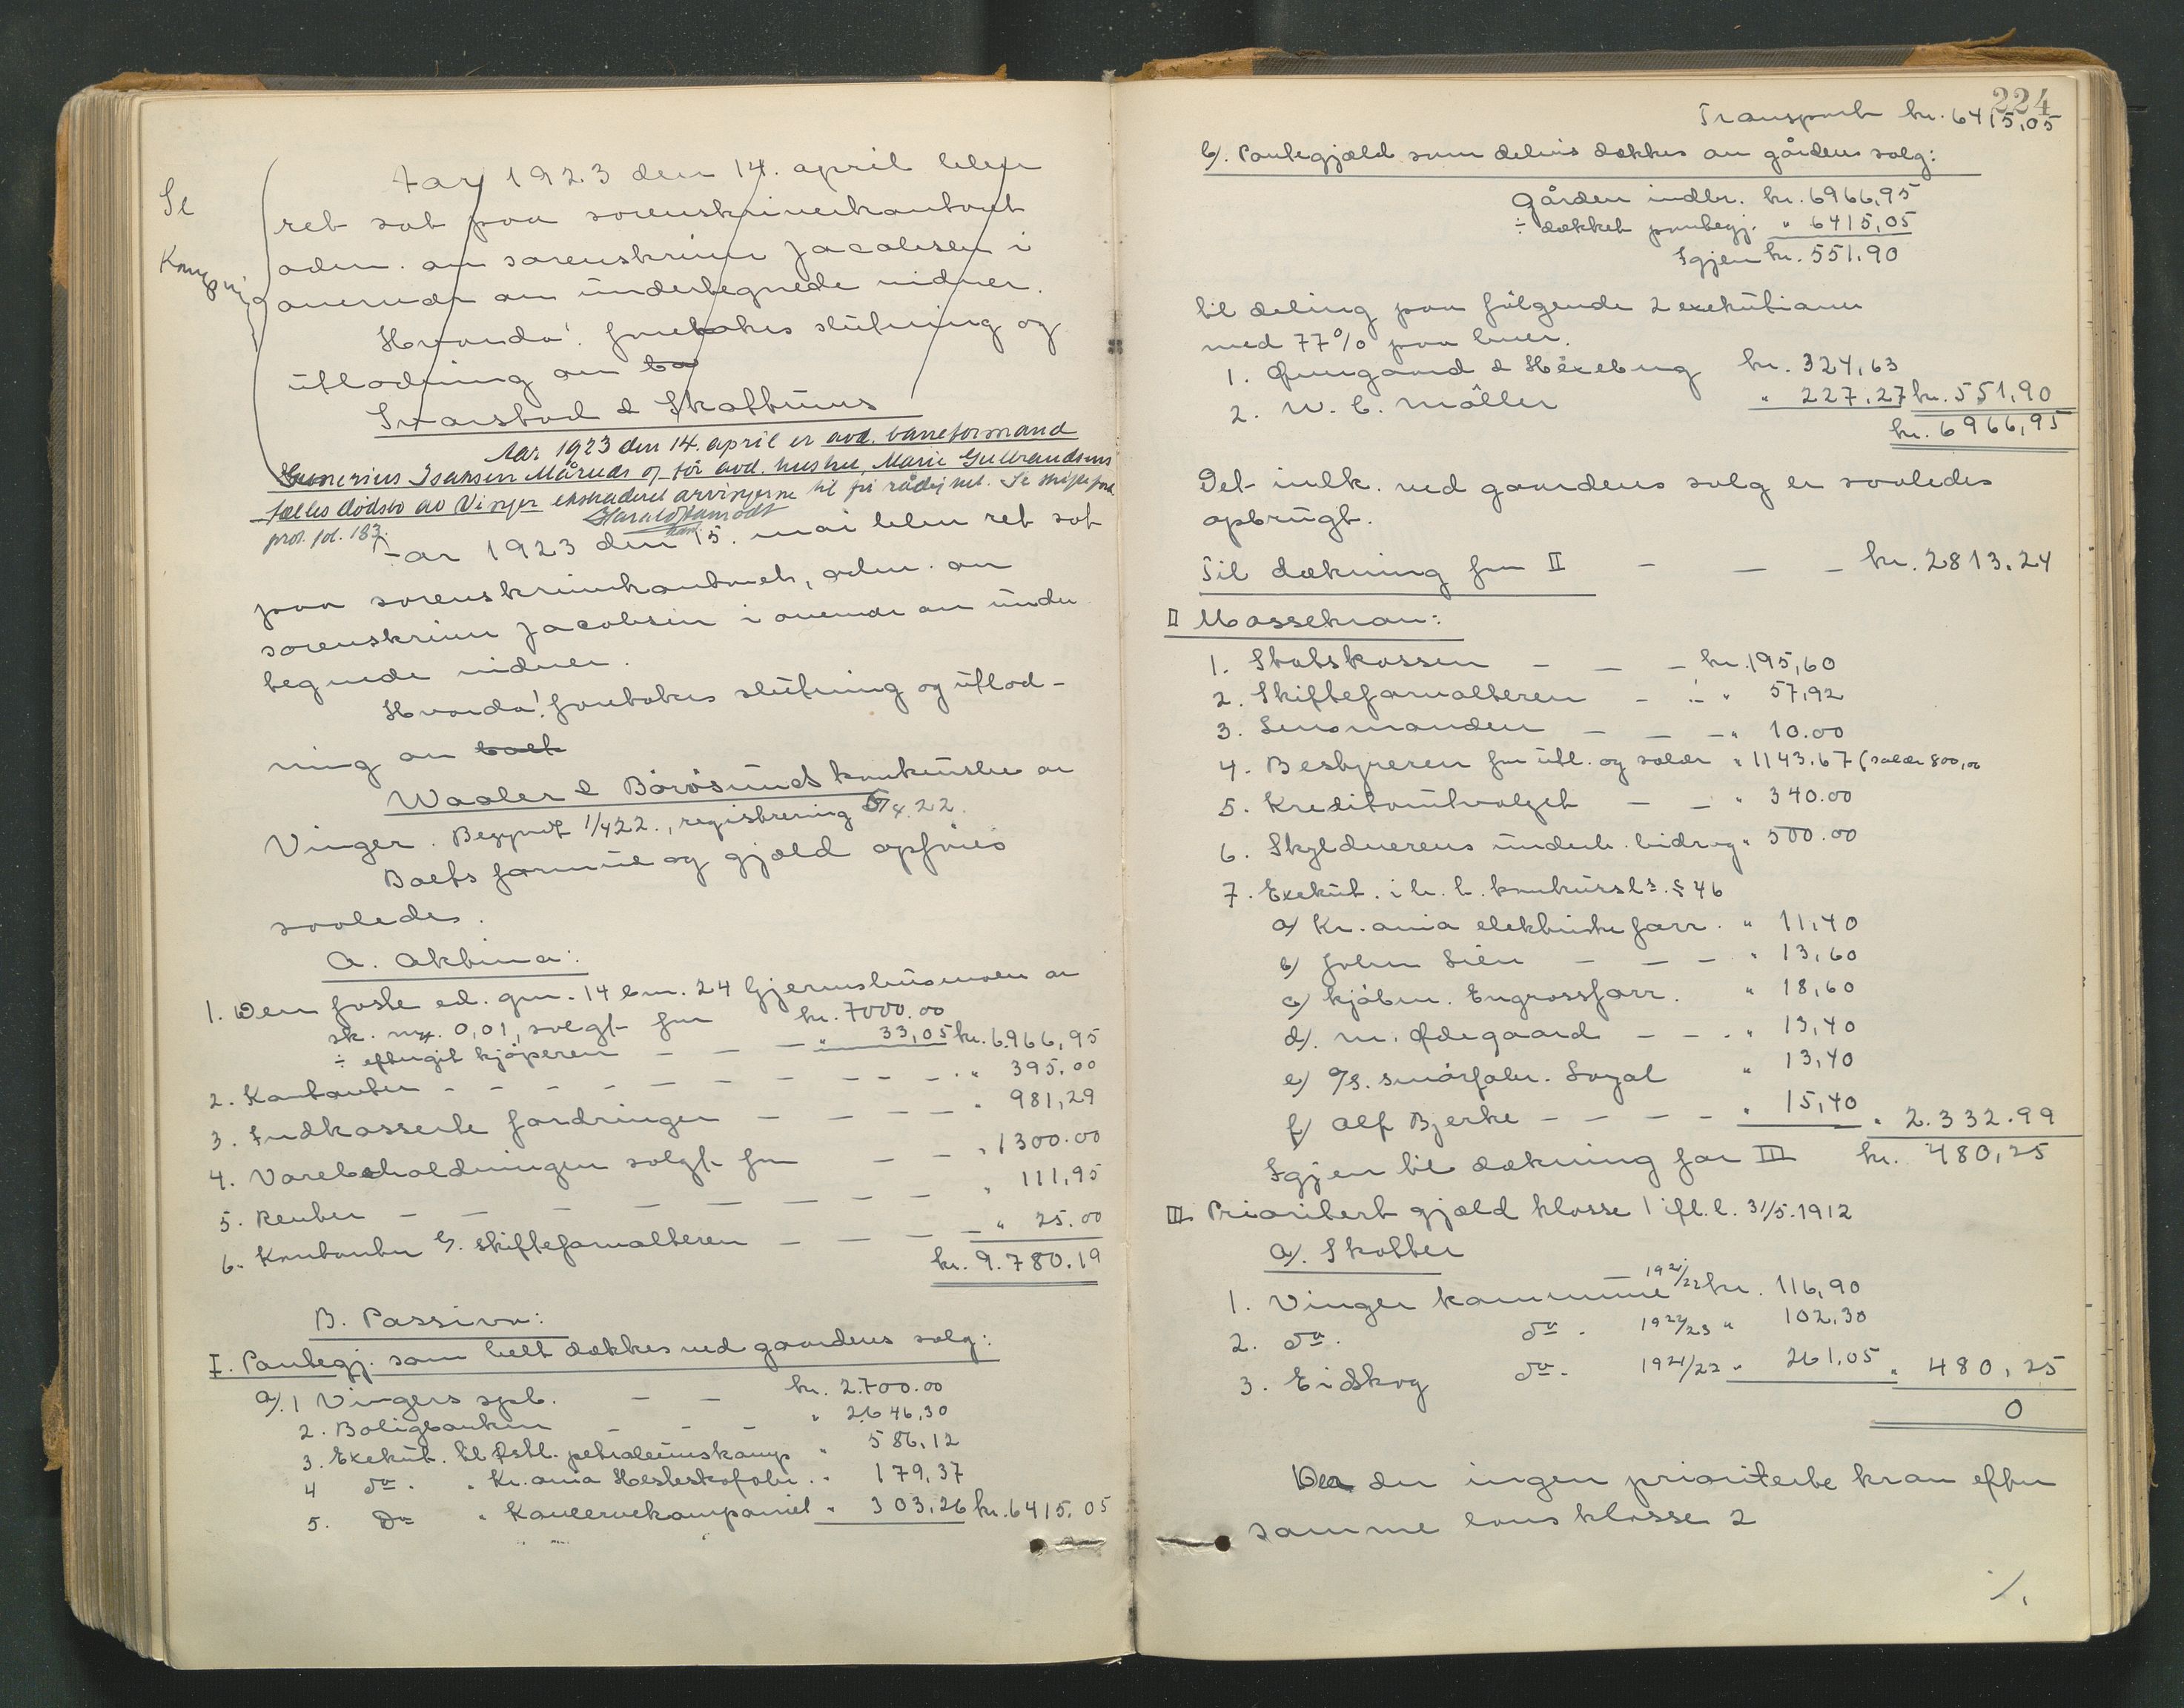 Aar 1923 den 14. april blev
ret sat paa sorenskriverkontoret
adm. av sorenskriver Jacobsen i
overvær av undertegnede vidner.
Se
Hvorda! foretokes slutning og
utlodning av bo
Svarstad & Skattums
Aar 1923 den 14. april er avd. baneformand
Gunerius Isaksen Måruds og før avd. hustru, Marie Gulbrandsens
fælles dødsbo av Vinger ekstraderet arvingerne til fri rådighet. Se skifteford.
prot. fol. 183.
Aar 1923 den 15. mai blev ret sat
paa sorenskriverkontoret, adm. av
sorenskriver Jacobsen i overvær av under
tegnede vidner.
Hvorda! foretokes slutning og utlod-
ning av boet
Waaler & Börösunds konkursbo av
Vinger. Begyndt 1/4 22., registrering 5/4.22.
Boets formue og gjæld opføres
saaledes.
A. Aktiva:
1. Den faste ed. gnr. 14 bnr. 24 Gjermshusmoen av
sk. mrk. 0,01, solgt for kr. 7000.00
÷ eftergit kjøperen - - - " 33,05 kr. 6.966,95
2. Kontanter - - - - - - - - - " 395.00
3. Indkasserte fordringer - - - - " 981,29
4. Varebeholdningen solgt for - - " 1300.00
5. Renter - - - - - - - " 111,95
6. Kontanter hos skifteforvalteren - - - - " 25.00
kr. 9.780.19
B. Passiva:
I. Pantegj. som helt dækkes ved gaardens salg:
a). 1 Vingers spb. - - kr. 2.700.00
2. Boligbanken - - - " 2646,30
3. Exekut. til Østl. petroleumskomp " 586,12
4 do. " Kr.ania Hesteskofabr. " 179,37
5. Do " Konservekompaniet " 303,26 kr. 6415.05
224
Transport kr. 6415,05
b). Pantegjæld som delvis dækkes av gårdens salg:
Gården indbr. kr. 6966,95
÷ dækket pantegj. " 6415,05
Igjen kr. 551.90
til deling paa følgende 2 exekutioner
med 77% paa hver.
1. Øvergaard & Hexeberg kr. 324,63
2. W. C. Møller " 227,27 kr. 551,90
kr. 6966,95
Det indk. ved gaardens salg er saaledes
opbrugt.
Til dækning for II - - - kr. 2813.24
II Massekrav:
1. Statskassen - - - kr. 195,60
2. Skifteforvalteren - - " 57,92
3. Lensmanden - - - " 10.00
4. Bestyreren for utl. og salær " 1143.67 (salær 800,00
5. Kreditorutvalget - - " 340.00
6. Skyldnerens underh. bidrag " 500.00
7. Exekut. i h. t. konkursls. § 46
a) Kr.ania elektriske forr. " 11,40
b) John Lien - - - " 13,60
c) Kjøbm. Engrossforr. " 18,60
d). M. Ødegaard - - - " 13,40
e) A/S. Smørfabr. Loyal " 13,40
f) Alf Bjerke - - - - " 15,40 " 2.332.99
Igjen til dækning for III kr. 480,25
III. Prioritert gjæld klasse 1 ifl. l. 31/5.1912
a). Skatter
1. Vinger kommune 1921/22 kr. 116,90
2. do. do. 1922/23 " 102,30
3. Eidskog do. 1921/22 " 261.05 " 480,25
0
Da der ingen prioriterte krav efter
samme lovs klasse 2